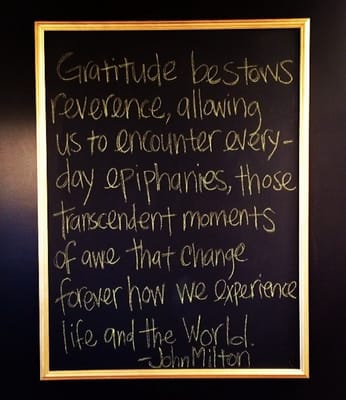 Gratitude bestows
reverence, allowing
us to encounter every-
day epiphanies, those
transcendent moments
of awe that change
forever how we experience
life and the World.
-John Milton